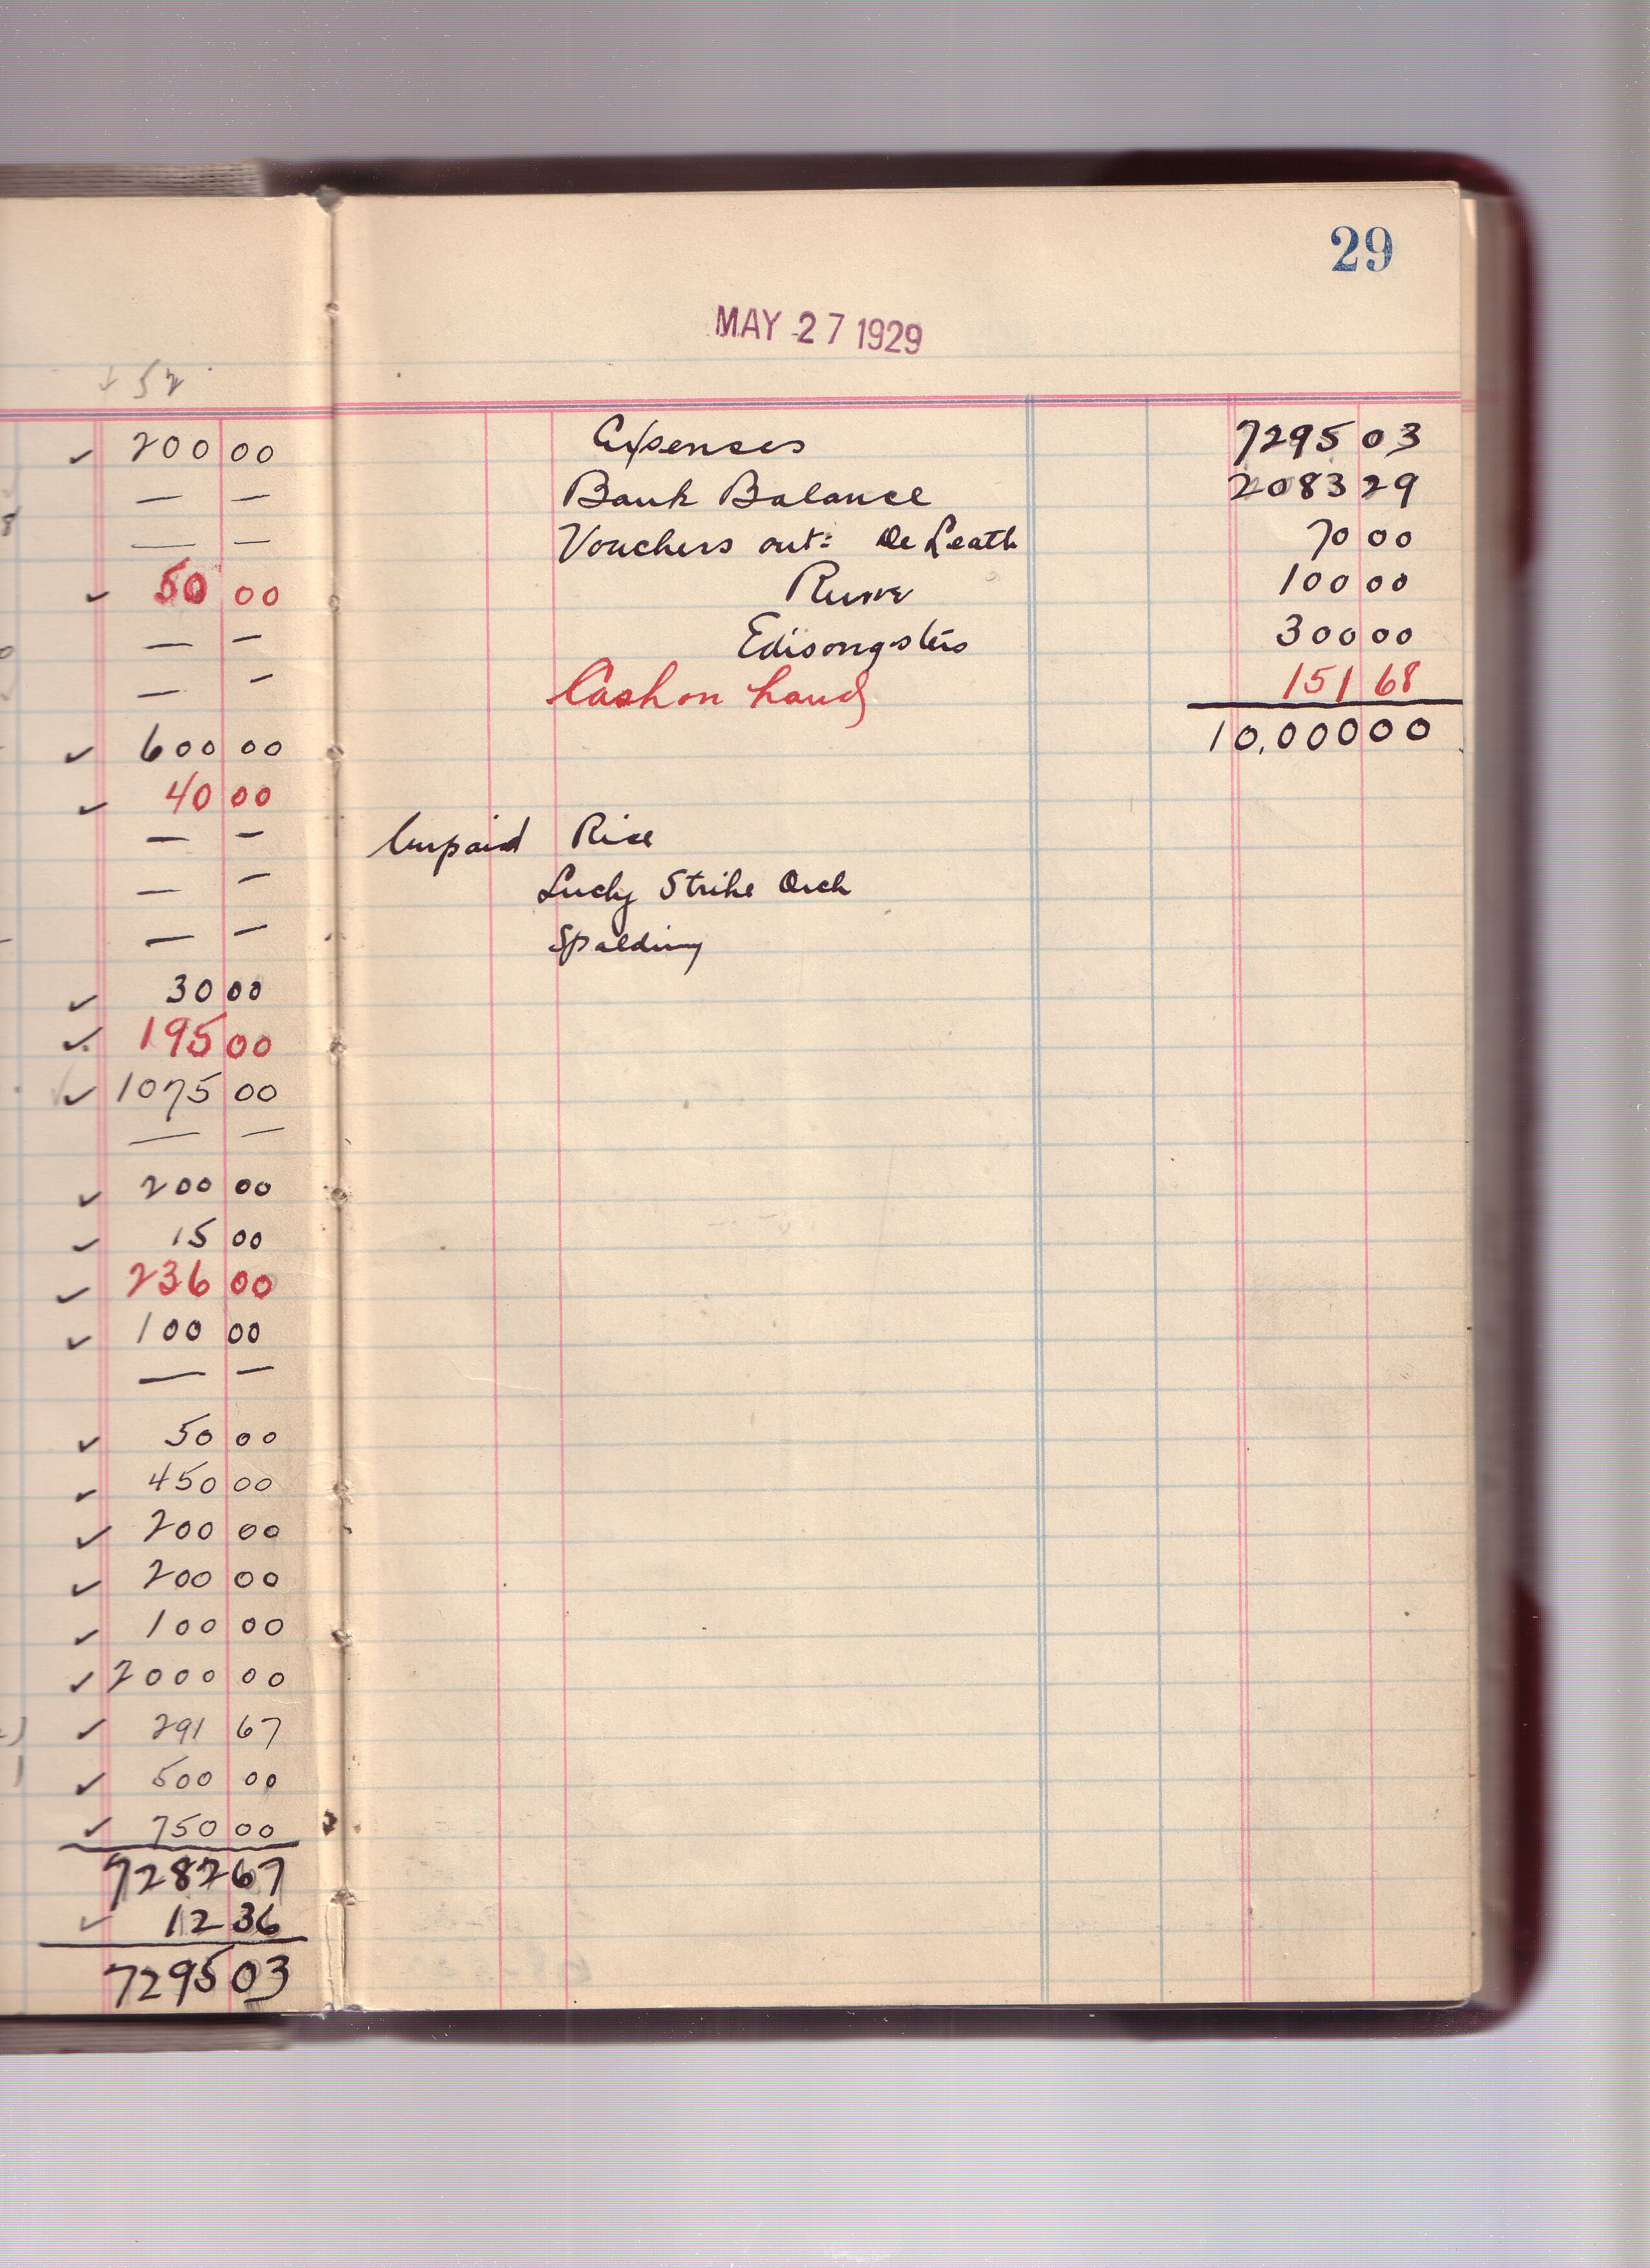 ↓ 52
✓ 200 00
— —
— —
✓ 50 00
— —
— —
✓ 600 00
✓ 40 00
— —
— —
— —
✓ 30 00
✓ 195 00
✓ 1075 00
— —
✓ 200 00
✓ 15 00
✓ 236 00
✓ 100 00
— —
✓ 50 00
✓ 450 00
✓ 200 00
✓ 200 00
✓ 100 00
✓ 2000 00
✓ 291 67
✓ 500 00
✓ 750 00
7282 67
✓ 12 36
7295 03
29
MAY 27 1929
Expenses 7295 03
Bank Balance 2083 29
Vouchers out: De Leath 70 00
100 00
Edisongsters 300 00
Cash on hand 151 68
10,000 00
Unpaid Rice
Lucky Strike Orch
Spalding